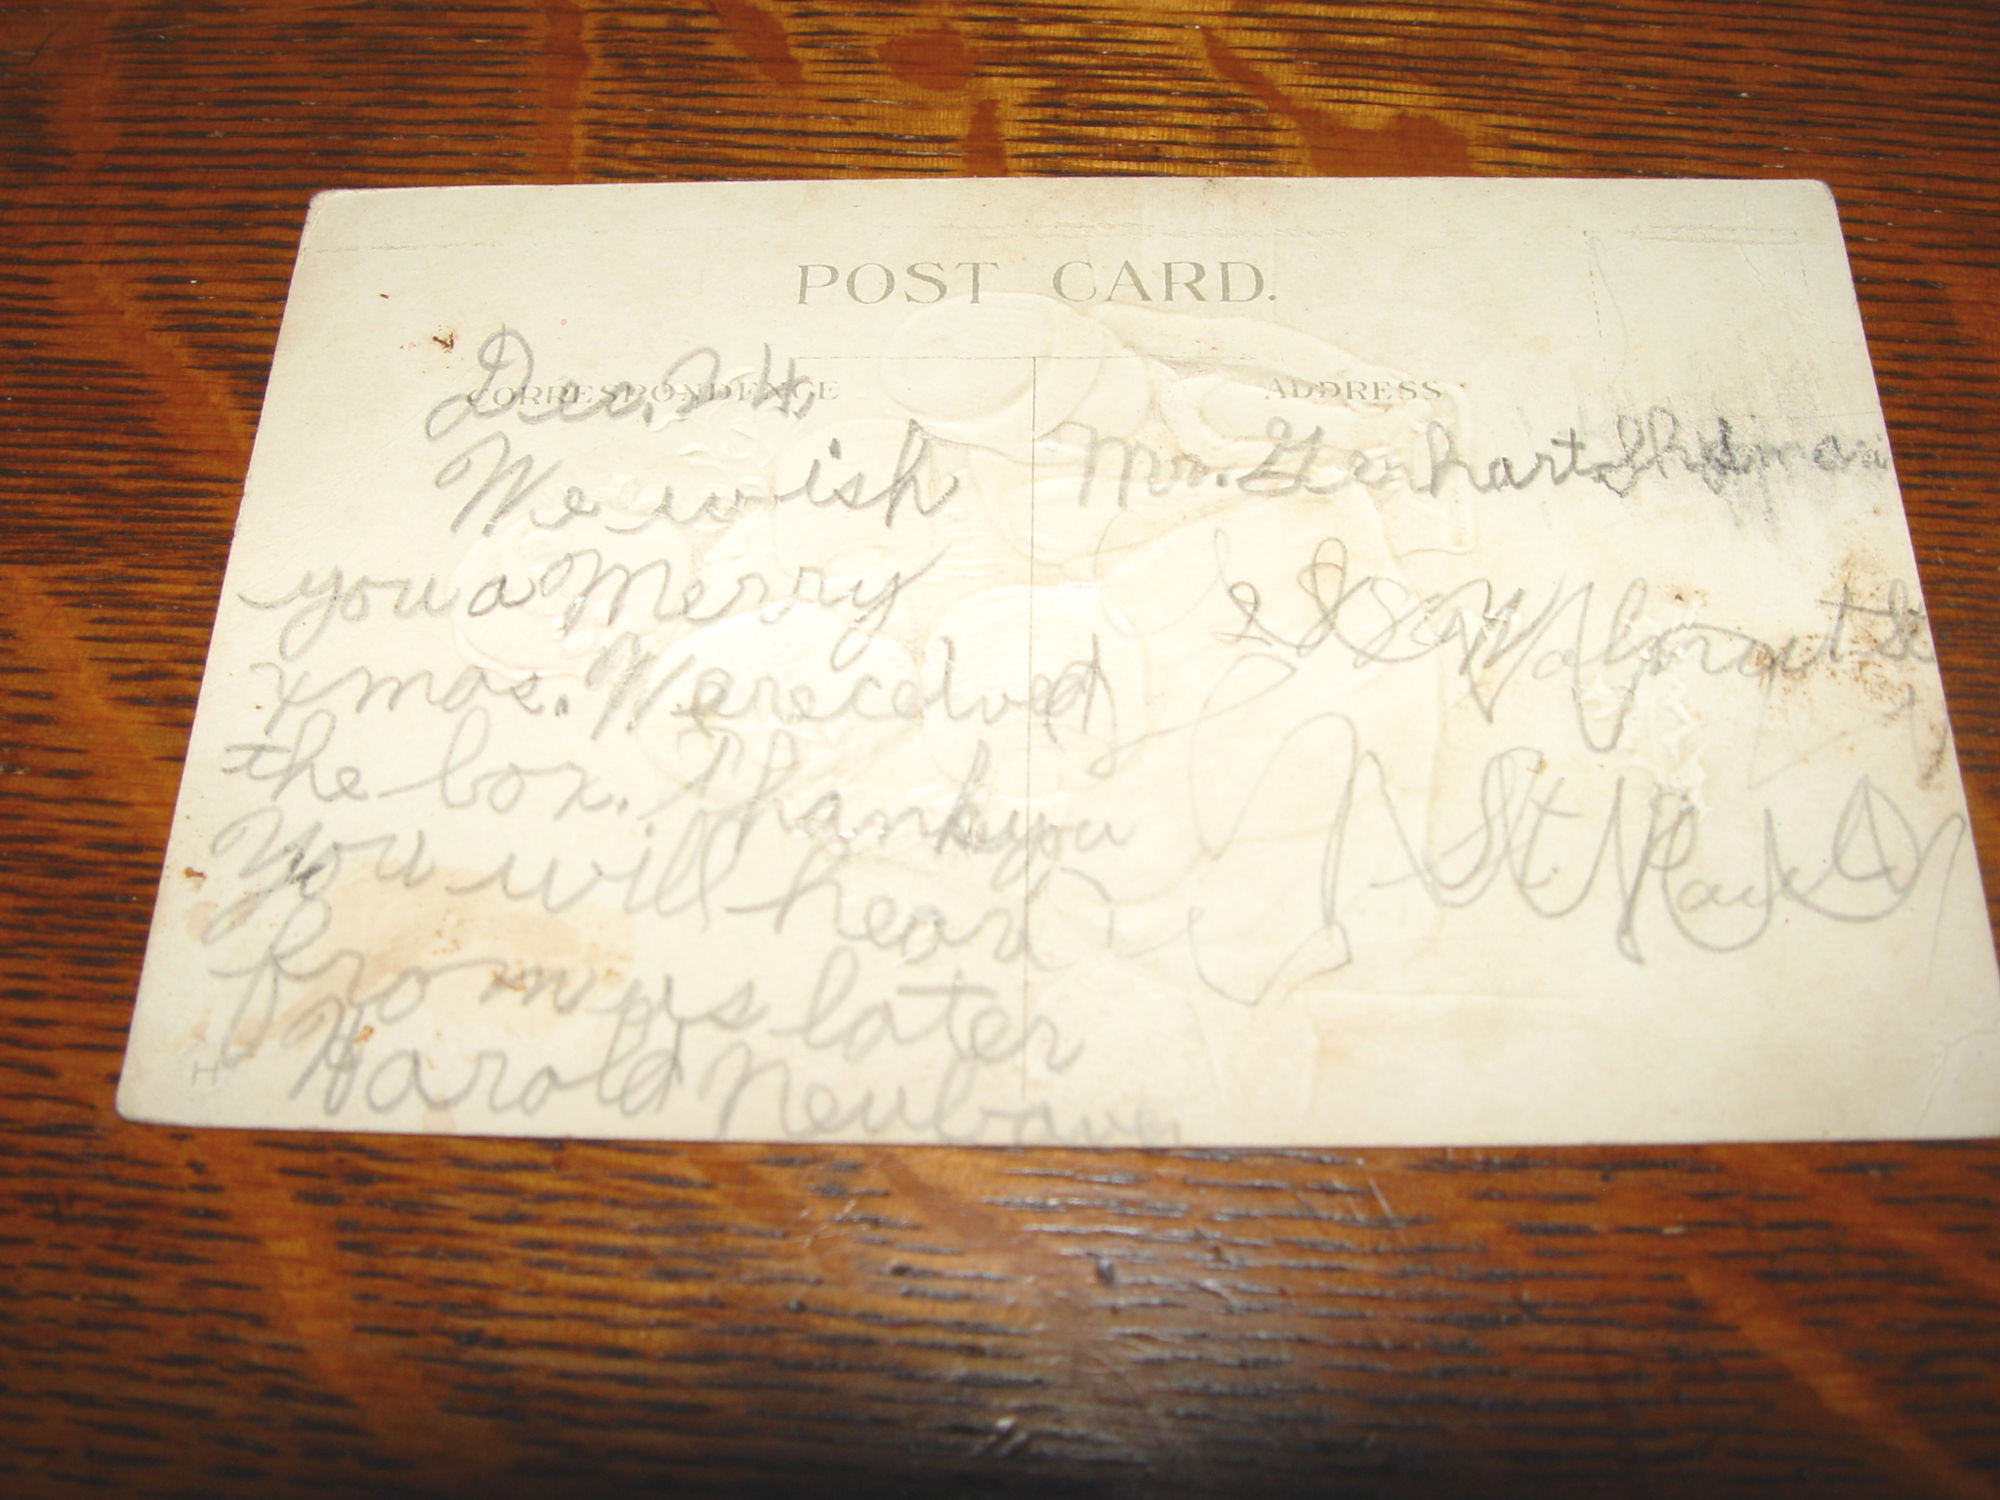 POST CARD.
CORRESPONDENCE
ADDRESS
Dec. 24,
We wish
you a Merry
xmas. We received
the box. Thank you
You will hear
from us later
Harold Neubauer
Mr. Gerhart
Walnut St
St. Paul
H